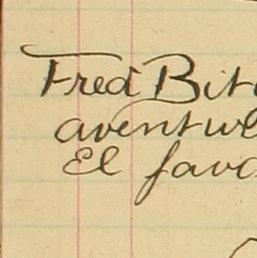 Fred Bit
aventure
El favo